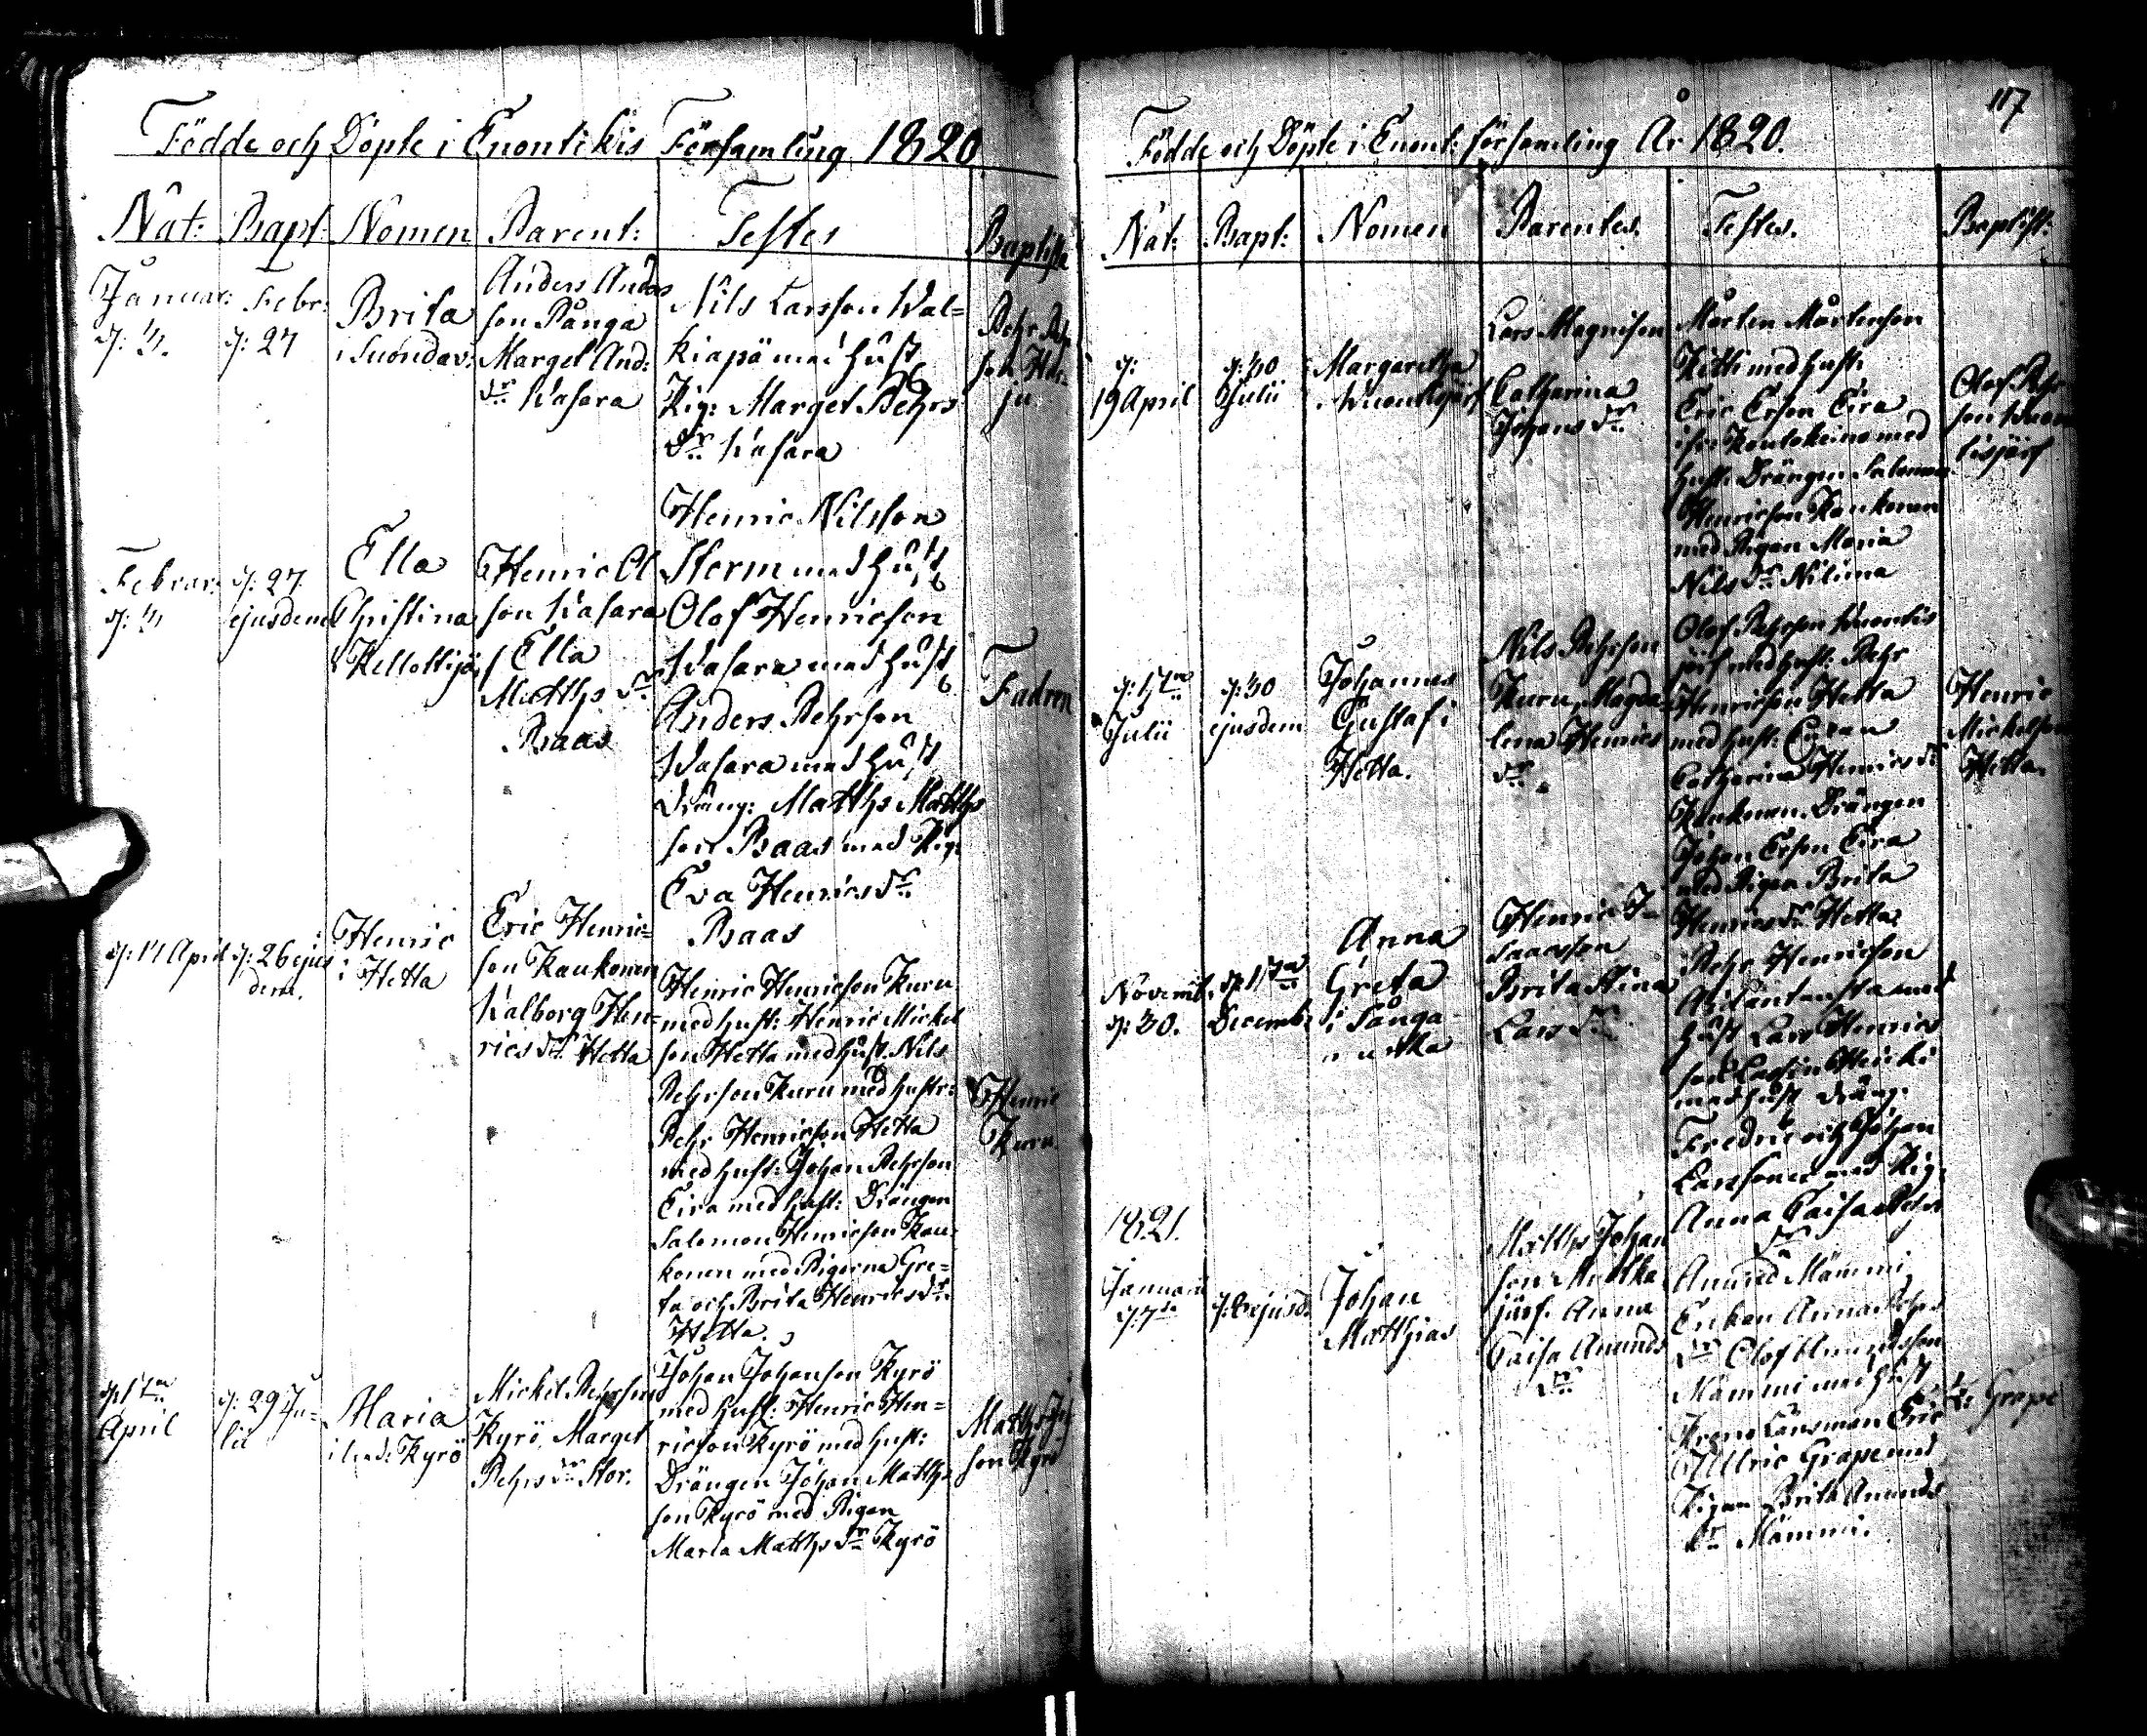 Födde och Döpte i Enontekis Församling 1820
Nat: Bapt: Nomen Parent: Testes Baptista
Januar:
d:
Febr:
d: 27
Brita
i Suondav:
Anders Anders
son Pånga
Marget And:
dr Wasara
Nils Larsson Wal=
kiapä med hust
Pig: Marget Pehrs
dr Wasara
Pehr Pehr
son
ju
Februar:
d:
d: 27
ejusdem
Ella
Christina
i Kellottijä
Henric Ol
son Wasara
Ella
Matths dr
Baas
Henric Nilsson
Storm med hust
Olof Henricson
Wasara med hust
Anders Pehrson
Wasara med hust
Dräng: Matths Matths
son Baas med Pig:
Eva Henrics dr
Baas
Fadren
d: 14 April
d: 26 ejus
dem.
Henric
i Hetta
Eric Henric=
son Kaukonen
Walborg Hen=
rics dr Hetta
Henric Henricson Kuru
med hust: Henric Mickel
son Hetta med hust. Nils
Pehrson Kuru med hustr:
Pehr Henricson Hetta
med hust: Johan Pehrson
Eira med hust: Drängen
Salomon Henricson Kau=
konen med Pigorna Gre=
ta och Brita Henrics dr
Hetta.
Henric
Kuru.
April
d: 29 Ju=
lii
Maria
i Kyrö
Mickel Pehrson
Kyrö, Marget
Pehrs dr Stor.
Johan Johanson Kyrö
med hust: Henric Hen=
ricson Kyrö med hust:
Drängen Johan Matths
son Kyrö med Pigan
Maria Matths dr Kyrö
Matths Joh
son Kyrö
117
Födde och Döpte i Enont: Församling År 1820.
Nat: Bapt: Nomen Parentes. Testes. Baptist:
d:
19 April
d: 30
Julii
Margaretha
i Wuontisjärf
Lars Magnison
Catharina
Johans dr
Mårten Mårtenson
Kitti med hust:
Eric Erson Eira
ifr: Koutokeino med
hust: Drängen Salomon
Henricson Kaukonen
med Pigan Maria
Nils dr Nilima
Olof Pehr
son Wuon
tisjärf
d: 17n
Julii
d: 30
ejusdem
Johannes
Gustaf i
Hetta.
Nils Pehrson
Kuru, Magda=
lena Henrics
dr.
Olof Pehrson Wuontis
järf med hust: Pehr
Henricson Hetta
med hust:
Catharina Henrics dr
Kaukonen. Drängen
Johan Erson Eira
med Pigan Brita
Henrics dr Hetta
Henric
Mickelson
Hetta.
Novemb.
d: 30.
d: 17n
Decemb:
Anna
Greta
i Sånga
muotka
Henric I=
saacsson
Brita Stina
Lars dr
Pehr Henricson
med
hust Lars Henrics
son
med hust Dräng:
Fredric och Johan
Larssoner med Pig:
Anna Caisa Pehrs
dr
1821.
Januarii
d: 7de
ejusd.
Johan
Matthias
Matths Johan
son Muotka
järf. Anna
Caisa Anunds
dr
Anund Mämmi
Enkan Anna Pehrs
dr Olof Anundsson
Mämmi med hust
Krono Länsman Eric
Ullric Grape med
Pigan Brita Anunds
dr Mämmi.
Grape